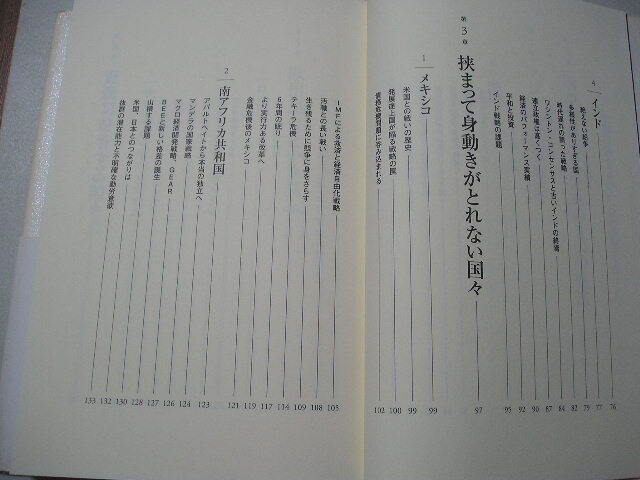 4 インド 76
絶えない紛争 77
多様性がありすぎる国 79
時代遅れの誤った戦略 82
ワシントン・コンセンサスと古いインドの終焉 84
連立政権は高くつく 87
経済のパフォーマンス実績 90
平和と投資 92
インド戦略の課題 95
第3章 挟まって身動きがとれない国々 97
1 メキシコ 99
米国との戦いの歴史 99
発展途上国が陥る戦略の罠 100
債務危機問題に呑み込まれる 102
IMFによる救済と経済自由化戦略 105
汚職との長い戦い 108
生き残るために競争に身をさらす 109
テキーラ危機 114
6年間の眠り 117
より実行力ある改革へ 119
金融危機後のメキシコ 121
2 南アフリカ共和国 123
アパルトヘイトから本当の独立へ 123
マンデラの国家戦略 124
マクロ経済開発戦略、GEAR 126
BEEと新しい格差の誕生 127
山積する課題 128
米国、日本とのつながりは 130
抜群の潜在能力と不明確な勤労意欲 132
133